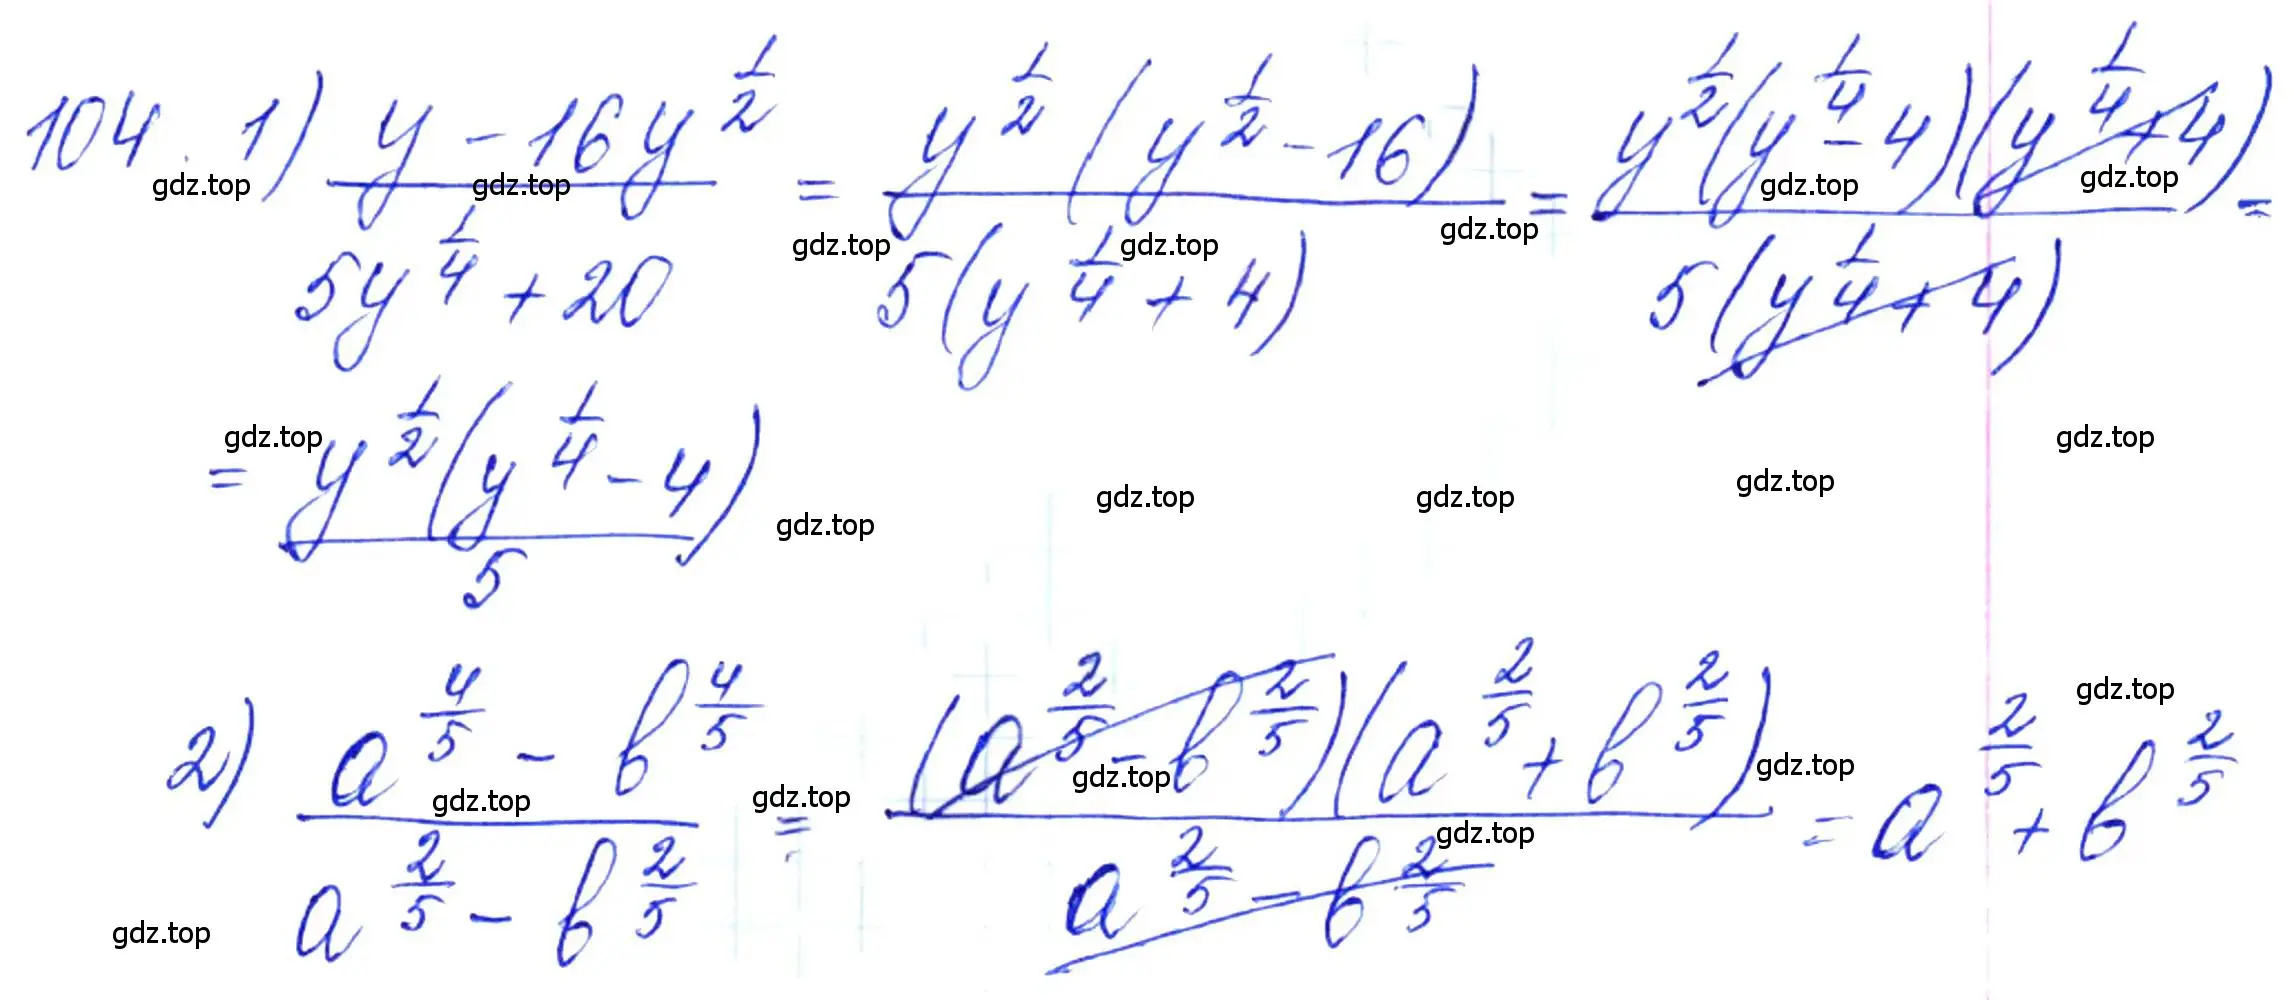 104. 1) \frac{y - 16y^{\frac{1}{2}}}{5y^{\frac{1}{4}} + 20} = \frac{y^{\frac{1}{2}}(y^{\frac{1}{2}} - 16)}{5(y^{\frac{1}{4}} + 4)} = \frac{y^{\frac{1}{2}}(y^{\frac{1}{4}} - 4)(y^{\frac{1}{4}} + 4)}{5(y^{\frac{1}{4}} + 4)} =
= \frac{y^{\frac{1}{2}}(y^{\frac{1}{4}} - 4)}{5}
2) \frac{a^{\frac{4}{5}} - b^{\frac{4}{5}}}{a^{\frac{2}{5}} - b^{\frac{2}{5}}} = \frac{(a^{\frac{2}{5}} - b^{\frac{2}{5}})(a^{\frac{2}{5}} + b^{\frac{2}{5}})}{a^{\frac{2}{5}} - b^{\frac{2}{5}}} = a^{\frac{2}{5}} + b^{\frac{2}{5}}
gdz.top gdz.top gdz.top gdz.top
gdz.top gdz.top gdz.top
gdz.top gdz.top
gdz.top gdz.top gdz.top gdz.top
gdz.top
gdz.top gdz.top gdz.top
gdz.top gdz.top gdz.top
gdz.top